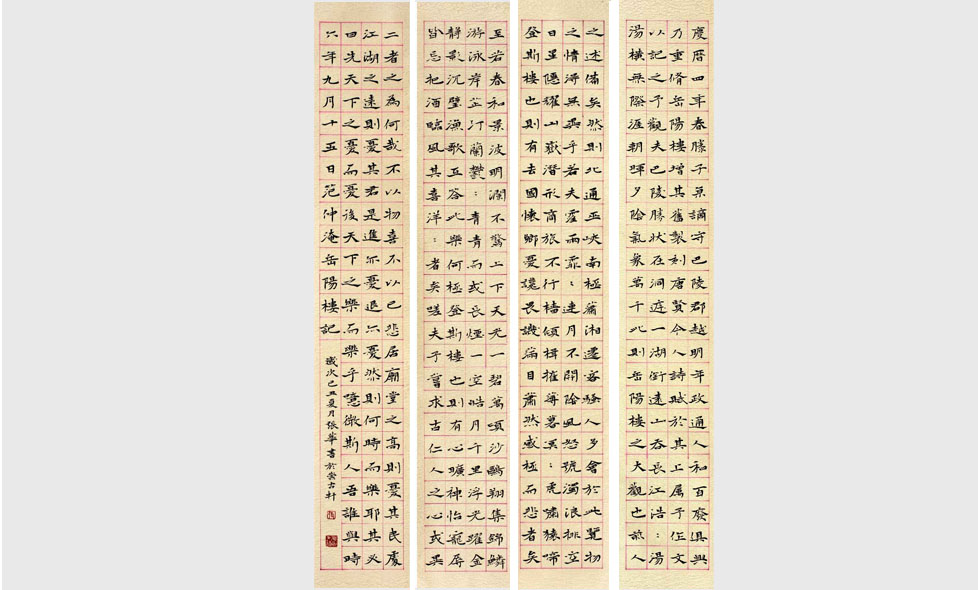 慶曆四年春滕子京謫守巴陵郡越明年政通人和百廢俱興
乃重脩岳陽樓增其舊製刻唐賢今人詩賦於其上属予作文
以記之予觀夫巴陵勝狀在洞庭一湖銜遠山吞長江浩：湯
湯橫無際涯朝暉夕陰氣象萬千此則岳陽樓之大觀也前人
之述備矣然則北通巫峽南極瀟湘遷客騷人多會於此覽物
之情得無異乎若夫霪雨霏：連月不開陰風怒號濁浪排空
日星隱耀山嶽潛形商旅不行檣傾楫摧薄暮冥：虎嘯猿啼
登斯樓也則有去國懷鄉憂讒畏譏滿目蕭然感極而悲者矣
至若春和景波明瀾不驚上下天光一碧萬頃沙鷗翔集錦鱗
游泳岸芷汀蘭鬱：青青而或長煙一空皓月千里浮光躍金
靜影沉璧漁歌互答此樂何極登斯樓也則有心曠神怡寵辱
皆忘把酒臨風其喜洋：者矣嗟夫予嘗求古仁人之心或異
二者之為何哉不以物喜不以己悲居廟堂之高則憂其民處
江湖之遠則憂其君是進亦憂退亦憂然則何時而樂耶其必
曰先天下之憂而憂後天下之樂而樂乎噫微斯人吾誰與時
六年九月十五日范仲淹岳陽樓記
歲次己丑夏月張華書於崇古軒